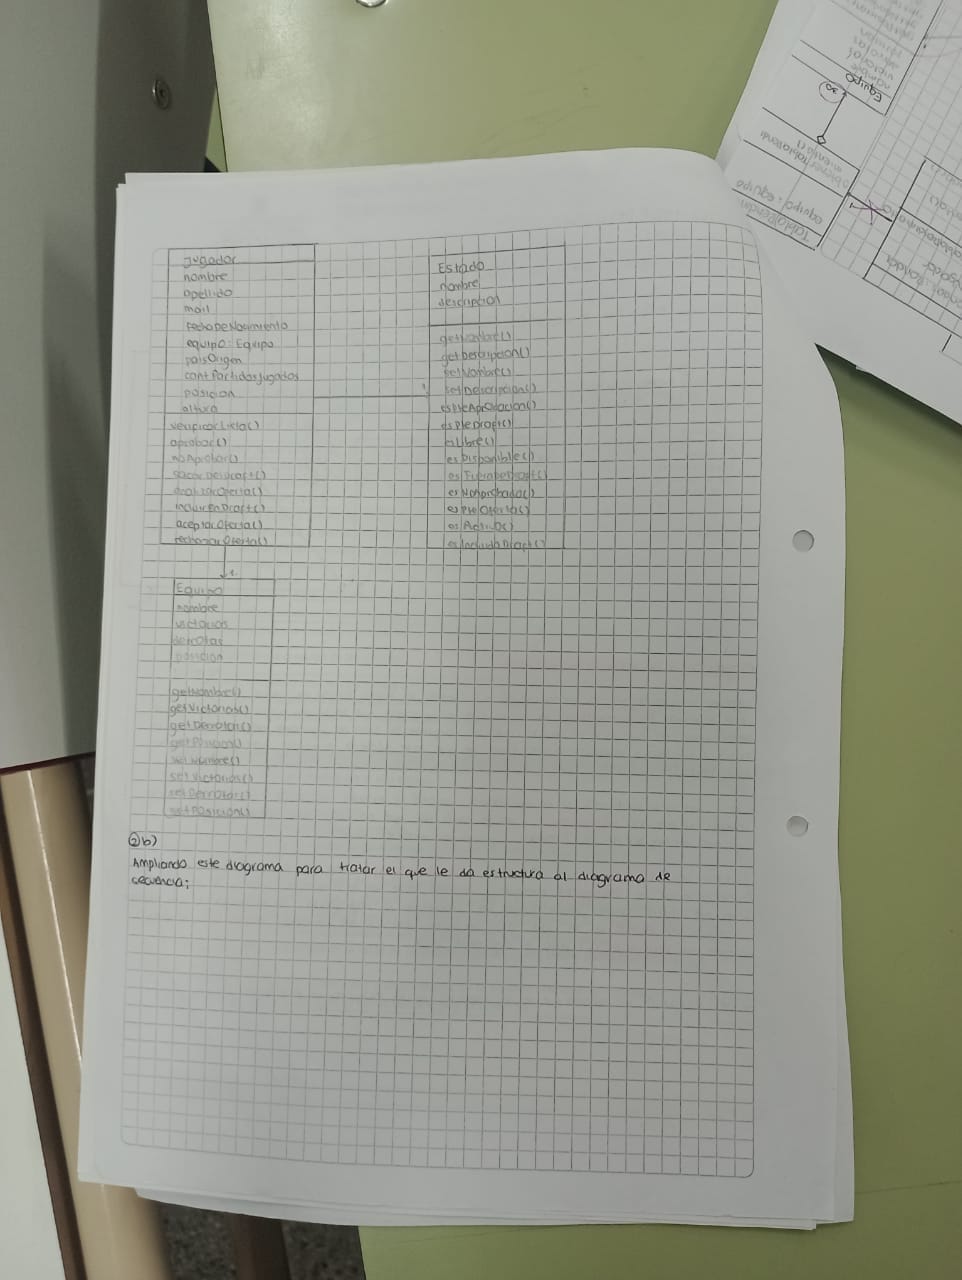 Jugador
nombre
apellido
mail
FechaDeNacimiento
equipo: Equipo
paisOrigen
cantPartidosJugados
posicion
altura
verificarLista()
aprobar()
noAprobar()
sacarDeDraft()
realizarOferta()
incluirEnDraft()
aceptarOferta()
rechazarOferta()
1
Estado
nombre
descripcion
getNombre()
getDescripcion()
setNombre()
setDescripcion()
esPreAprobacion()
esPreDraft()
esLibre()
esDisponible()
esFueraDeDraft()
esNoAprobado()
esPreOferta()
esActivo()
esIncluidoDraft()
1
Equipo
nombre
victorias
derrotas
posicion
getNombre()
getVictorias()
getDerrotas()
getPosicion()
setNombre()
setVictorias()
setDerrotas()
setPosicion()
2b)
Ampliando este diagrama para tratar el que le da estructura al diagrama de
cecuencia;
TablaPosicion
equipo: equipo
obtenerTabla
Equipo
nombre
victorias
derrotas